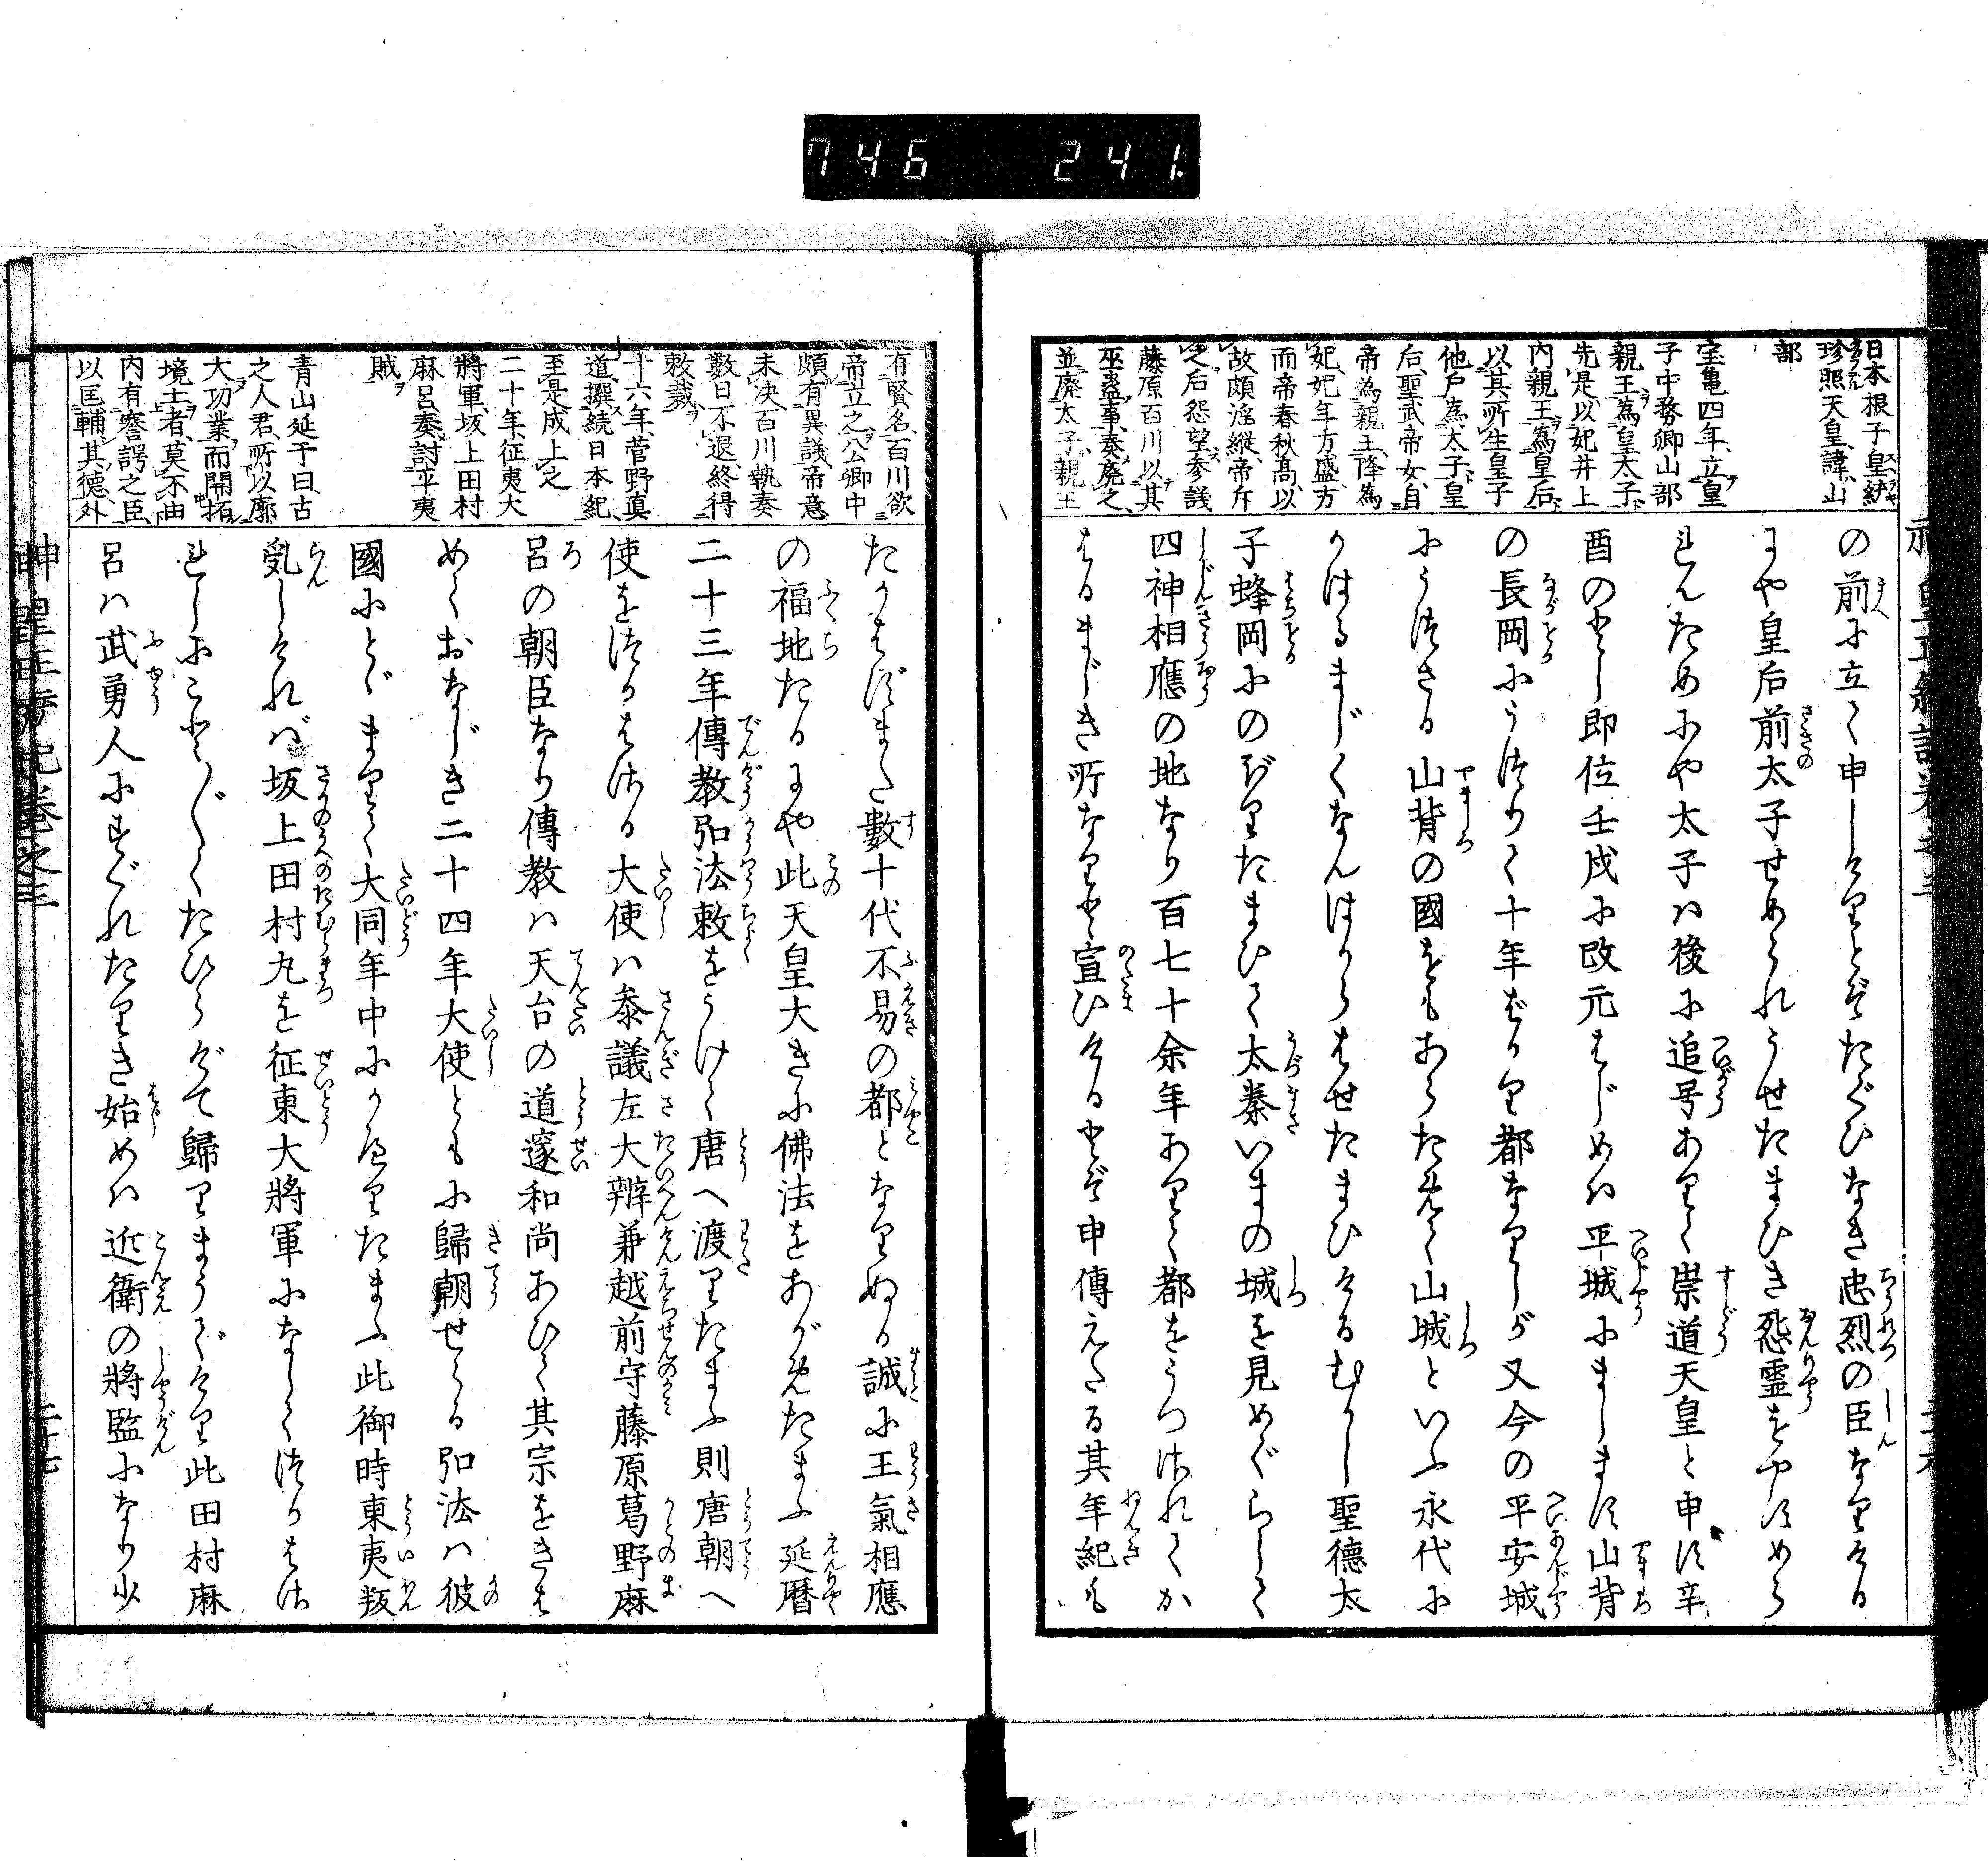 746 241.
日本根子皇統
珍照天皇、諱山
部
宝亀四年、立皇
子中務卿山部
親王為皇太子
先是以妃井上
内親王為皇后
以其所生皇子
他戸為太子、皇
后、聖武帝女、自
帝為親王、降為
妃、妃年方盛、方
而帝春秋髙、以
故頗淫縦、帝斥
之后怨望参議
藤原百川以其
巫蠱事、奏廃之
並廃太子、親王
の前に立て申しけりとぞたぐひなき忠烈の臣なりける
にや皇后前太子せめられうせたまひき怨霊をやすめら
れんためにや太子ハ後に追号ありて崇道天皇と申す辛
酉のとし即位壬戌に改元はじめハ平城にまします山背
の長岡にうつりて十年ばかり都なりしが又今の平安城
にうつさる山背の國をもあらためて山城といふ永代に
かはるまじくなんはからはせたまひけるむかし聖德太
子蜂岡にのぼりたまひて太秦いまの城を見めぐらして
四神相應の地なり百七十余年ありて都をうつされてか
はるまじき所なりと宣ひけるとぞ申傳えたる其年紀も
有賢名、百川欲
帝立之、公卿中
頗有異議、帝意
未決、百川執奏
數日不退、終得
敕裁
十六年、菅野真
道撰続日本紀
至是成上之
二十年、征夷大
將軍、坂上田村
麻呂奏討平夷
賊
青山延于曰、古
之人君、所以廓
大功業、而開拓
境土者、莫不由
内有謇諤之臣
以匡輔其德、外
たかはずまた數十代不易の都となりぬる誠に王氣相應
の福地たるにや此天皇大きに佛法をあがめたまふ延暦
二十三年傳教弘法敕をうけて唐へ渡りたまふ則唐朝へ
使をつかはさる大使ハ叅議左大辨兼越前守藤原葛野麻
呂の朝臣なり傳教ハ天台の道邃和尚あひて其宗をきは
めておなじき二十四年大使ともに歸朝せらる弘法ハ彼
國にとゞまりて大同年中にかへりたまふ此御時東夷叛
乱しければ坂上田村丸を征東大將軍になしてつかはさ
れしにことごとくたひらげて歸りまうでけり此田村麻
呂ハ武勇人にすぐれたりき始めハ近衛の將監になり少
神皇正統記巻之三
二十七